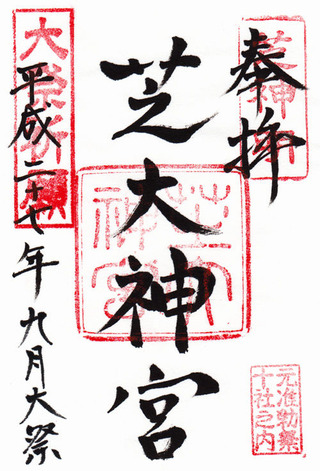 奉拝
芝大神宮
平成二十七年九月大祭
大祭祈願
芝大神宮
元准勅祭
十社之内